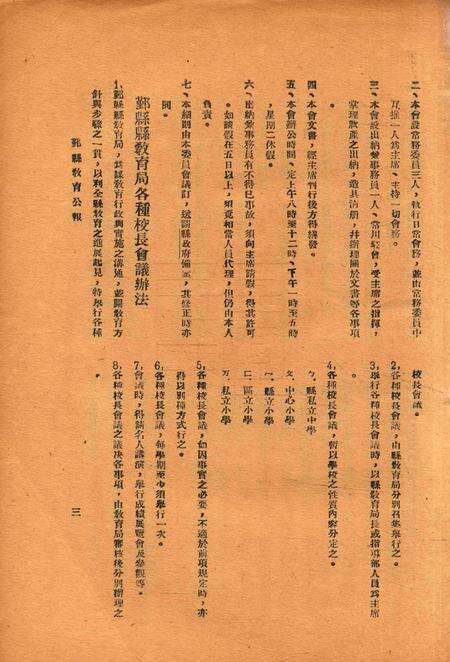 二、本會設常務委員三人，執行日常會務，並由常務委員中
互推一人爲主席，主持一切會務。
三、本會設出納兼事務員一人，常川駐會，受主席之指揮，
掌理款產之出納，造具清册，并辦理關於文書等各事項
。
四、本會文書，經主席判行後方得繕發。
五、本會辦公時間，定上午八時至十二時，下午一時至五時
，星期二休假。
六、出納兼事務員有不得已事故，須向主席請假，得其許可
。如請假在五日以上，須覓相當人員代理，但仍由本人
負責。
七、本細則由本委員會議訂，送鄞縣政府備案，其修正時亦
同。
鄞縣縣敎育局各種校長會議辦法
1,鄞縣縣敎育局，爲謀敎育行政與實施之溝通，並關敎育方
針與步驟之一貫，以利全縣敎育之進展起見，特舉行各種
校長會議。
2,各種校長會議，由縣敎育局分別召集舉行之。
3,舉行各種校長會議時，以縣敎育局長或指導部人員爲主席
。
4,各種校長會議，暫以學校之性質內容分定之。
ㄅ、縣私立中學
ㄆ、中心小學
ㄇ、縣立小學
ㄈ、區立小學
ㄪ、私立小學
5,各種校長會議，如因事實之必要，不適於前項規定時，亦
得以別種方式行之。
6,各種校長會議，每學期至少須舉行一次。
7,會議時，得請名人講演，舉行成績展覽會及參觀等。
8,各種校長會議之議決各事項，由敎育局審核後分別辦理之
。
鄞縣敎育公報
三